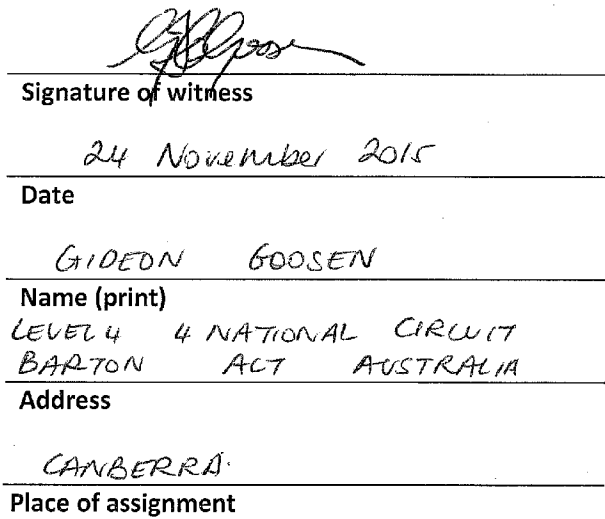 Signature of witness
24 November 2015
Date
GIDEON GOOSEN
Name (print)
LEVEL 4 4 NATIONAL CIRCUIT
BARTON ACT AUSTRALIA
Address
CANBERRA.
Place of assignment